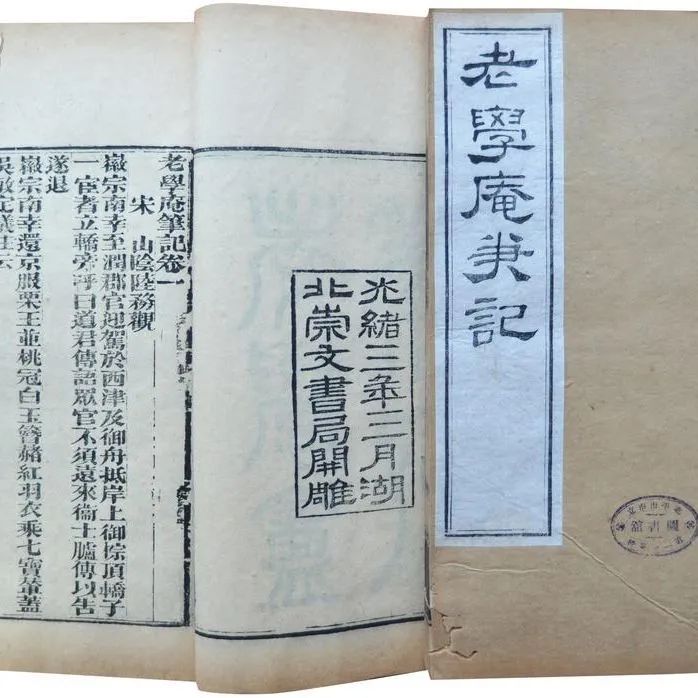 老學庵筆記
圖書舘
光緒三年三月湖
北崇文書局開雕
老學庵筆記卷一
宋 山陰陸務觀
徽宗南幸至潤郡官迎駕於西津及御舟抵岸上御棕頂轎子
一宦者立轎旁呼曰道君傳語眾官不須遠來衛士臚傳以告
遂退
徽宗南幸還京服栗玉並桃冠白玉簪赭紅羽衣乘七寶輦蓋
吳敏定儀注云